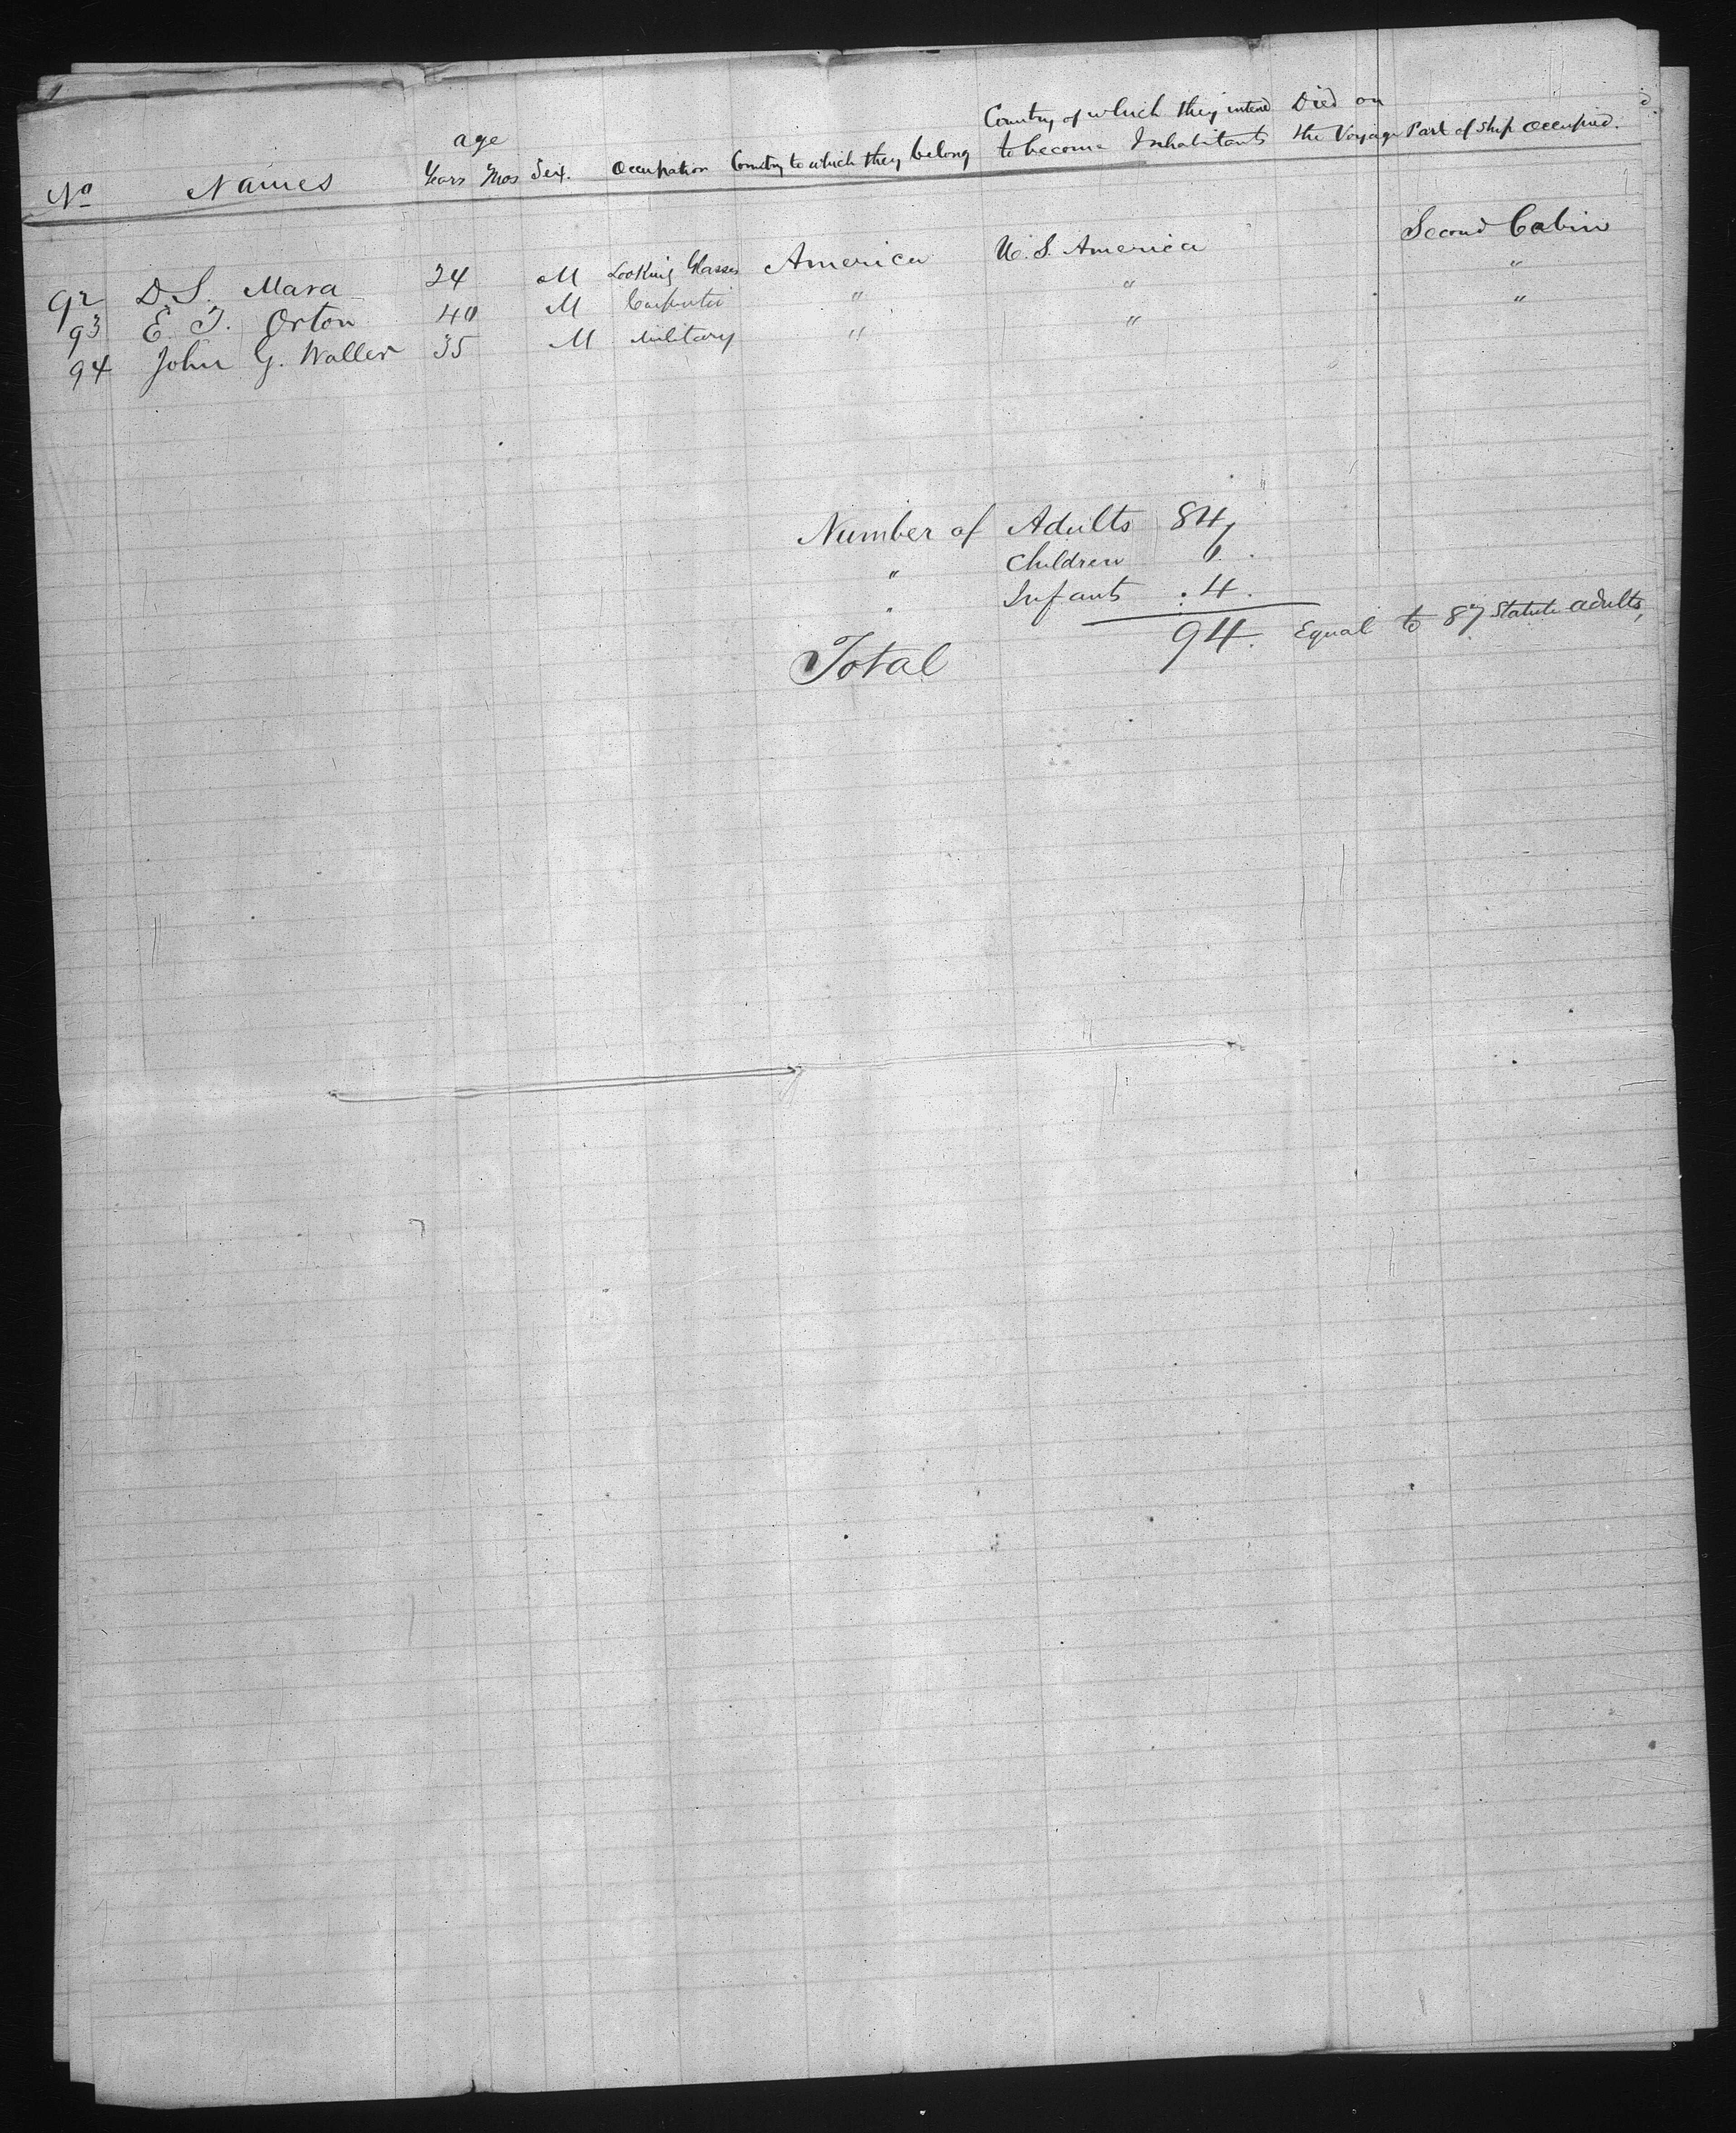 Country of which they intend Died on
age
No Names Years Mos Sex. Occupation Country to which they belong to become Inhabitants the Voyage Part of Ship occupied.
92 D. S. Mara 24 M Looking Glasses America U. S. America Second Cabin
93 E. T. Orton 40 M Carpenter " " "
94 John G. Waller 35 M Military " " "
Number of Adults 84
" Children
" Infants 4
Total 94. Equal to 87 Statute adults,